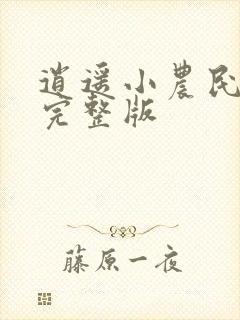 逍遥小農民
完整版
藤原一夜